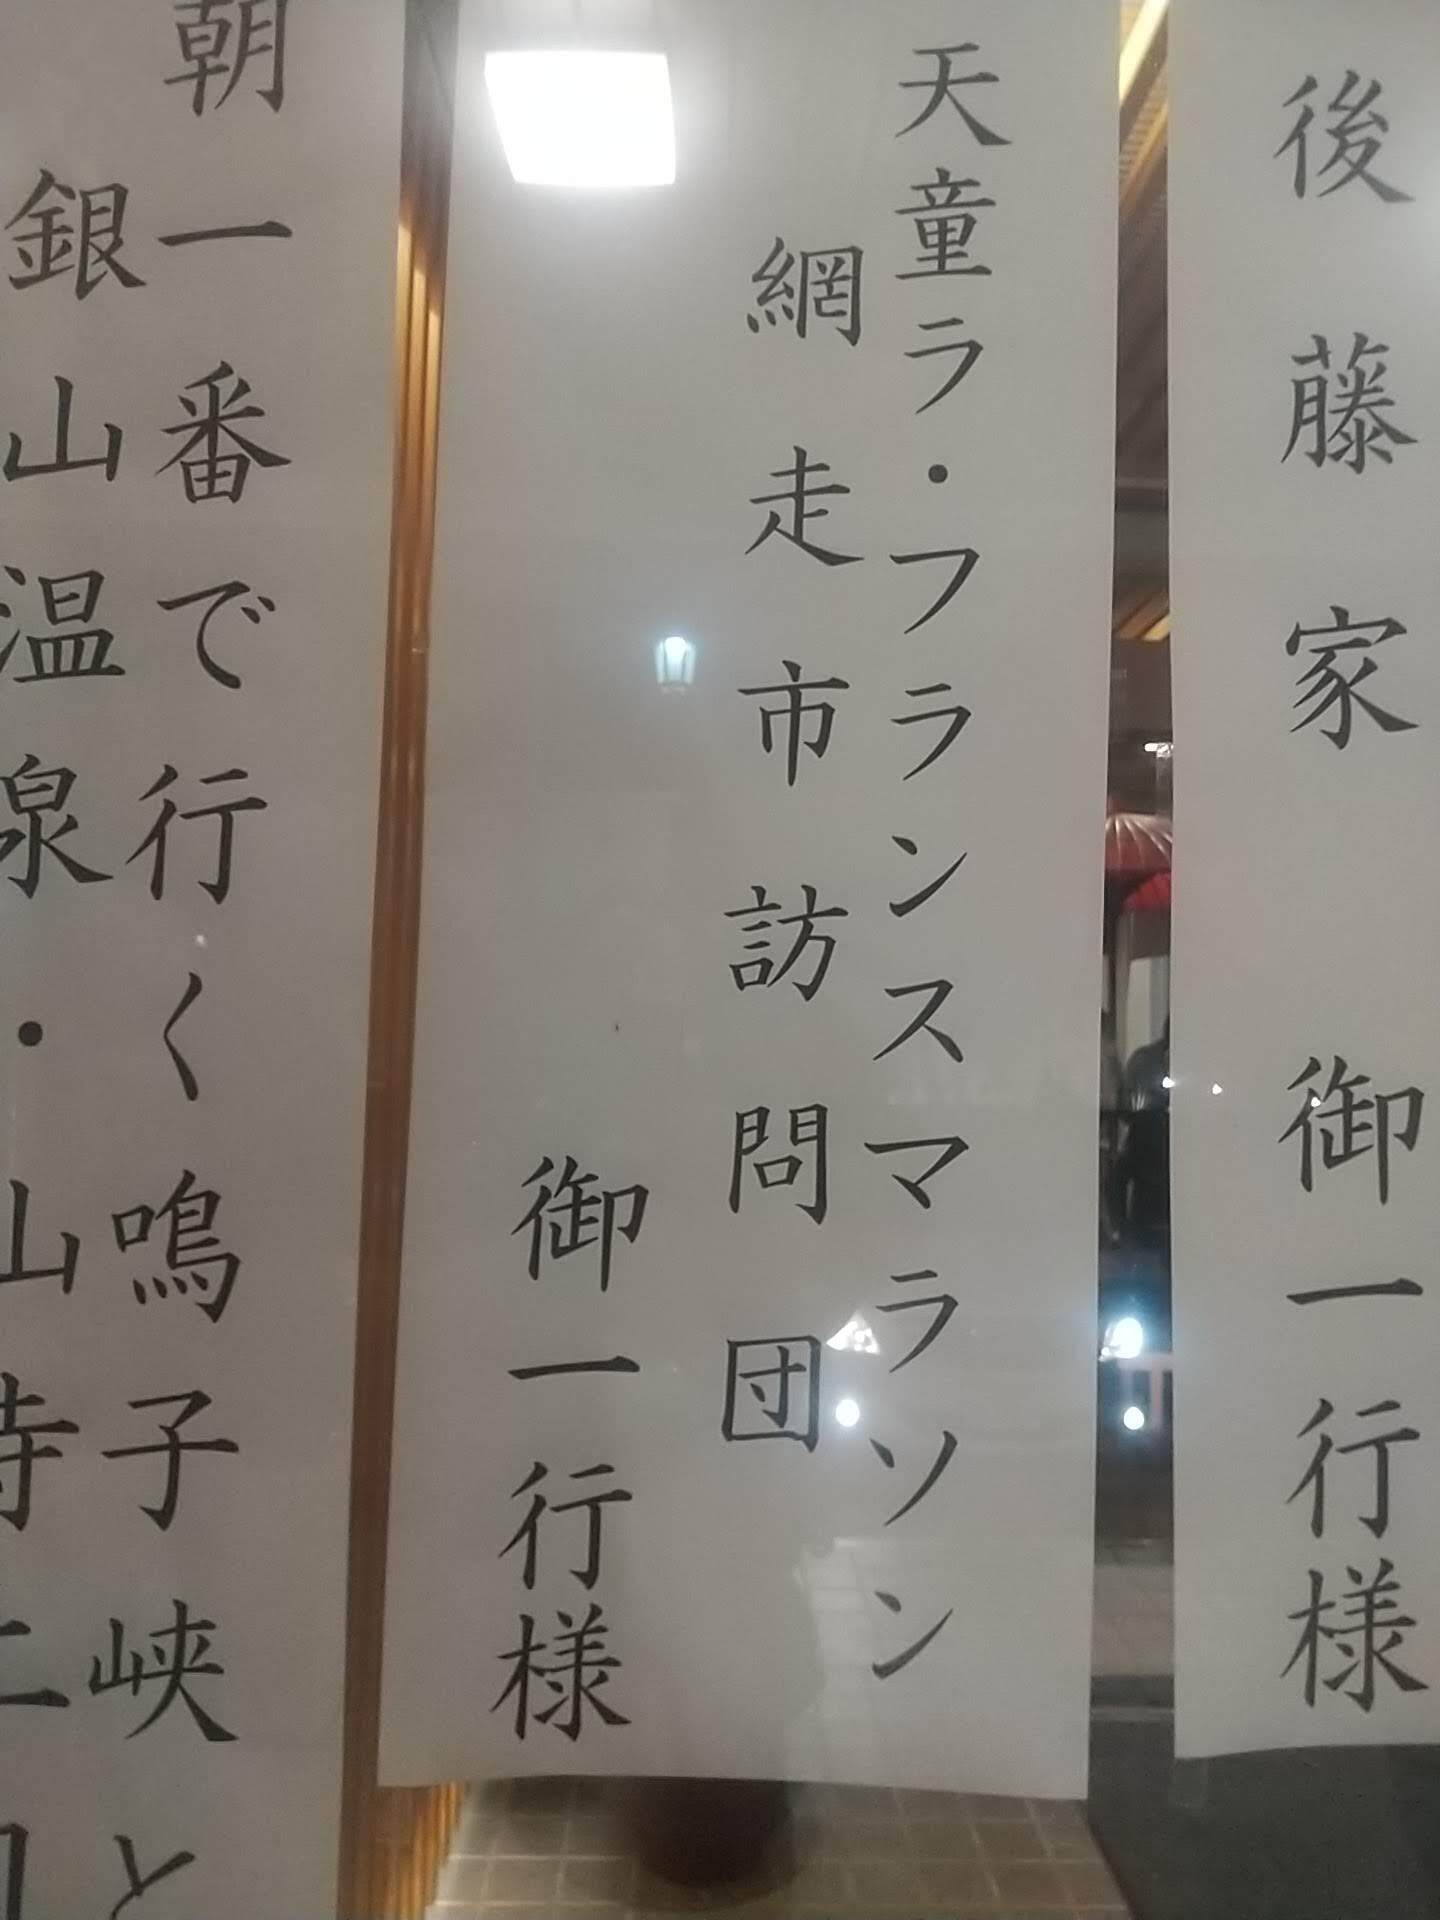 後藤家 御一行様
天童ラ・フランスマラソン
網走市訪問団
御一行様
朝一番で行く鳴子峡と
銀山温泉・山寺二